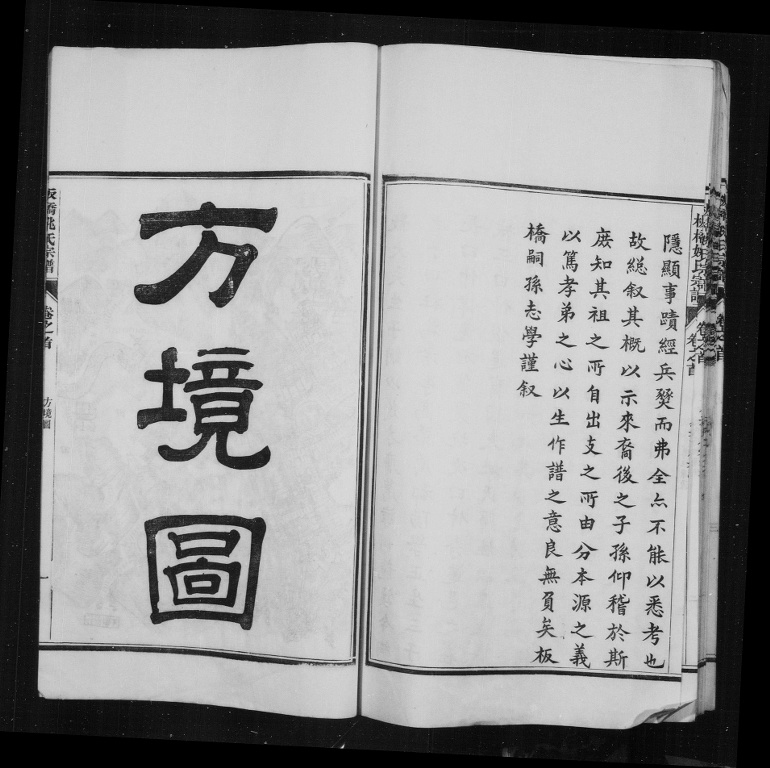 隱顯事蹟經兵燹而弗全亦不能以悉考也
故總叙其概以示來裔後之子孫仰稽於斯
庶知其祖之所自出支之所由分本源之義
以篤孝弟之心以生作譜之意良無負矣板
橋嗣孫志學謹叙
板橋姚氏宗譜
卷之首
方境圖
板橋姚氏宗譜
卷之首
方境圖
一